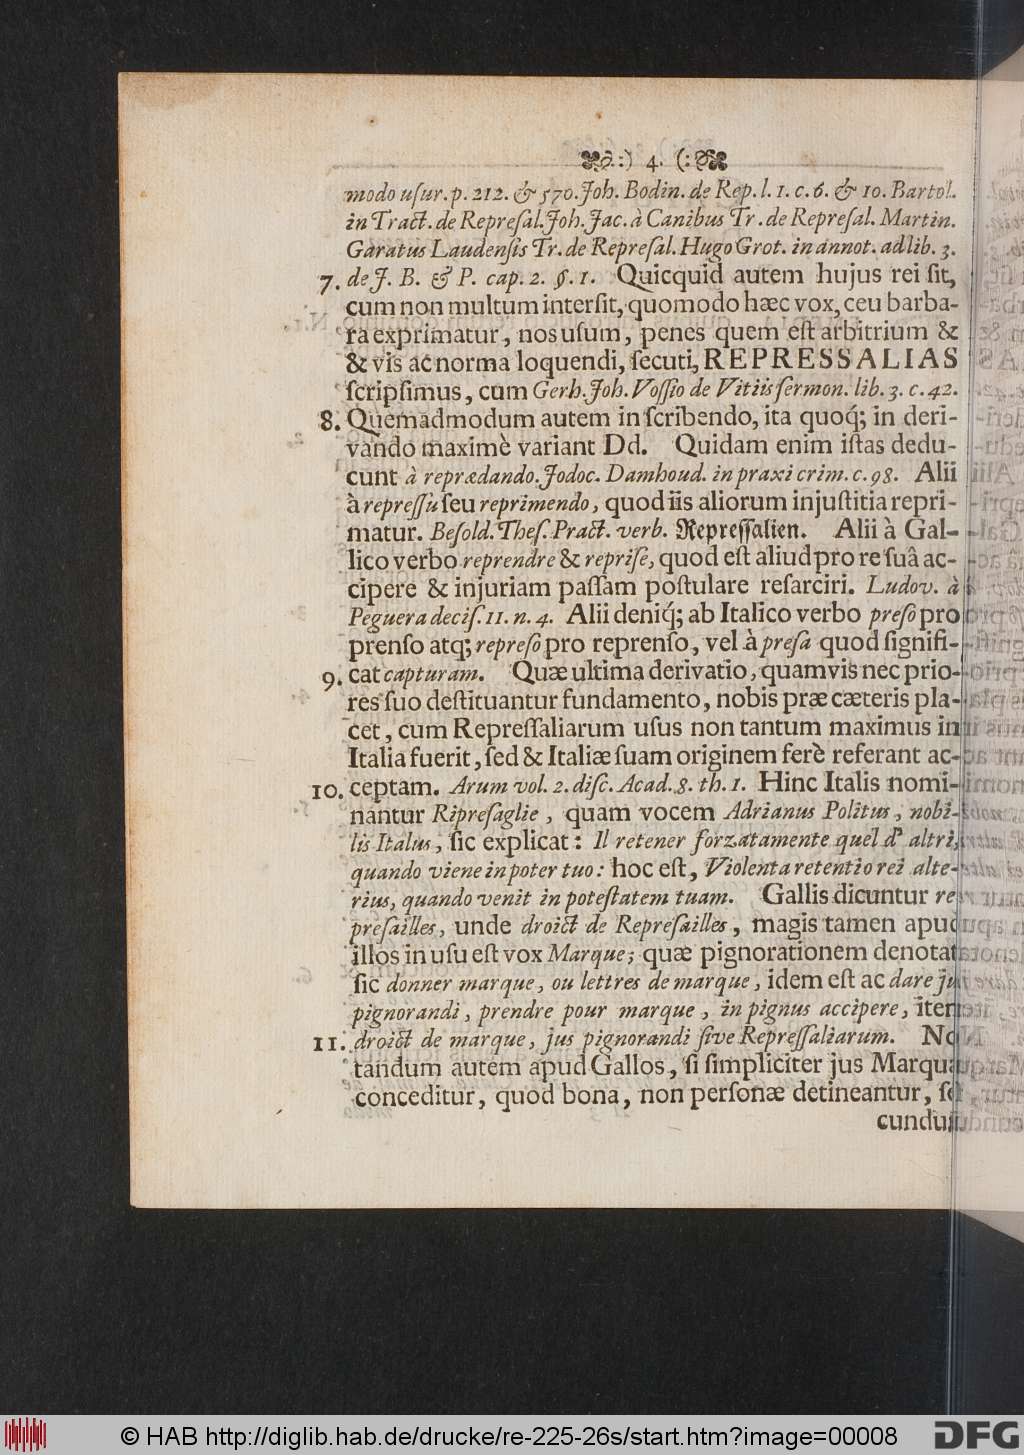 :) 4. (:
modo uſur. p. 212. & 570. Joh. Bodin. de Rep. l. 1. c. 6. & 10. Bartol.
in Tract. de Repreſal. Joh. Jac. à Canibus Tr. de Repreſal. Martin.
Garatus Laudenſis Tr. de Repreſal. Hugo Grot. in annot. ad lib. 3.
7. de J. B. & P. cap. 2. §. 1. Quicquid autem hujus rei ſit,
cum non multum interſit, quomodo hæc vox, ceu barba-
ra exprimatur, nos uſum, penes quem eſt arbitrium &
& vis ac norma loquendi, ſecuti, REPRESSALIAS
ſcripſimus, cum Gerh. Joh. Voſſio de Vitiis ſermon. lib. 3. c. 42.
8. Quemadmodum autem in ſcribendo, ita quoq́; in deri-
vando maximè variant Dd. Quidam enim iſtas dedu-
cunt à reprædando. Jodoc. Damhoud. in praxi crim. c. 98. Alii
à repreſſu ſeu reprimendo, quod iis aliorum injuſtitia repri-
matur. Beſold. Theſ. Pract. verb. Repreſſalien. Alii à Gal-
lico verbo reprendre & repriſe, quod eſt aliud pro re ſuâ ac-
cipere & injuriam paſſam poſtulare reſarciri. Ludov. à
Peguera deciſ. 11. n. 4. Alii deniq́; ab Italico verbo preſo pro
prenſo atq; repreſo pro reprenſo, vel à preſa quod ſignifi-
9. cat capturam. Quæ ultima derivatio, quamvis nec prio-
res ſuo deſtituantur fundamento, nobis præ cæteris pla-
cet, cum Repreſſaliarum uſus non tantum maximus in
Italia fuerit, ſed & Italiæ ſuam originem ferè referant ac-
10. ceptam. Arum vol. 2. diſc. Acad. 8. th. 1. Hinc Italis nomi-
nantur Ripreſaglie, quam vocem Adrianus Politus, nobi-
lis Italus, ſic explicat: Il retener forzatamente quel d' altri,
quando viene in poter tuo: hoc eſt, Violenta retentio rei alte-
rius, quando venit in poteſtatem tuam. Gallis dicuntur re
preſailles, unde droict de Repreſailles, magis tamen apud
illos in uſu eſt vox Marque; quæ pignorationem denotat
ſic donner marque, ou lettres de marque, idem eſt ac dare ju
pignorandi, prendre pour marque, in pignus accipere, item
11. droict de marque, jus pignorandi ſive Repreſſaliarum. No
tandum autem apud Gallos, ſi ſimpliciter jus Marquæ
conceditur, quod bona, non perſonæ detineantur, ſe
cundum
© HAB http://diglib.hab.de/drucke/re-225-26s/start.htm?image=00008
DFG